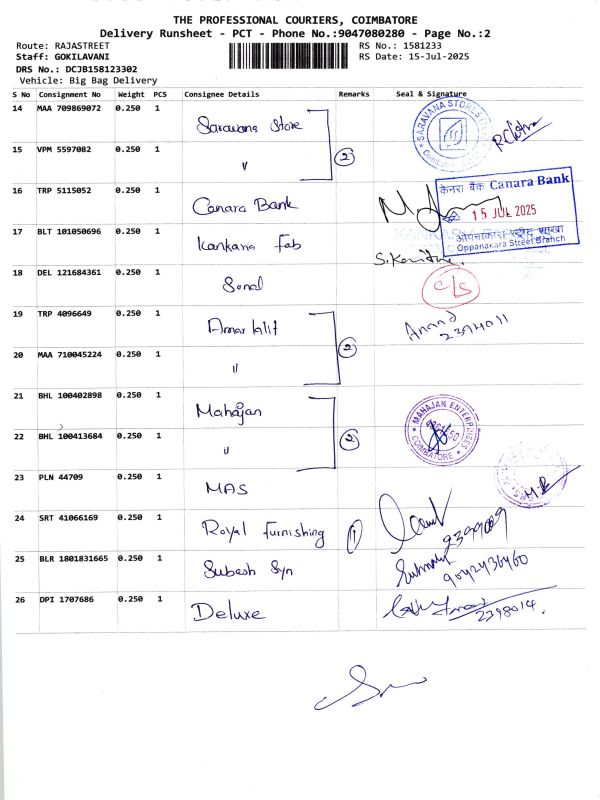 THE PROFESSIONAL COURIERS, COIMBATORE
Delivery Runsheet - PCT - Phone No.:9047080280 - Page No.:2
Route: RAJASTREET
RS No.: 1581233
Staff: GOKILAVANI
RS Date: 15-Jul-2025
DRS No.: DCJB158123302
Vehicle: Big Bag Delivery
S No Consignment No Weight PCS Consignee Details Remarks Seal & Signature
14 MAA 709869072 0.250 1 Saravana Store SARAVANA STORES
15 VPM 5597082 0.250 1 〃 2
16 TRP 5115052 0.250 1 Canara Bank
केनरा बैंक Canara Bank
15 JUL 2025
ओप्पनकारा स्ट्रीट शाखा
Oppanakara Street Branch
17 BLT 101050696 0.250 1 Kankana Fab
18 DEL 121684361 0.250 1 Sonal c/s
19 TRP 4096649 0.250 1 Amar lalit Anand
2394011
20 MAA 710045224 0.250 1 〃 2
21 BHL 100402898 0.250 1 Mahajan MAHAJAN ENTERPRISES COIMBATORE
22 BHL 100413684 0.250 1 〃 2
23 PLN 44709 0.250 1 MAS
24 SRT 41066169 0.250 1 Royal Furnishing
25 BLR 1801831665 0.250 1 Subash Syn
9042436460
26 DPI 1707686 0.250 1 Deluxe 2398014.